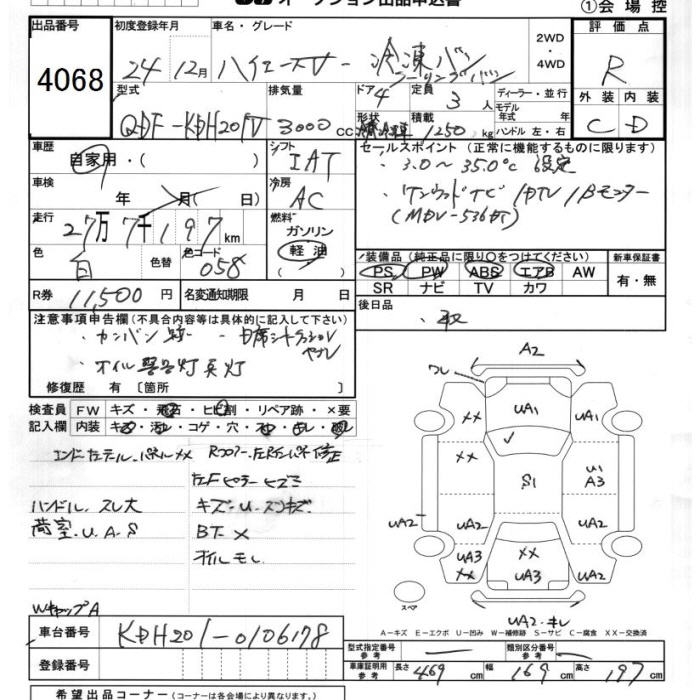 オークション出品申込書
①会場控
出品番号
4068
初度登録年月
24年12月
車名・グレード
ハイエースV- 冷凍バン
2WD
・
4WD
評価点
R
型式
QDF-KDH201V
排気量
3000cc
ドア
4
形状
定員
3人
積載
1250kg
ディーラー・並行
モデル
年式 年
ハンドル 左・右
外装 内装
C D
車歴
自家用・( )
シフト
IAT
セールスポイント(正常に機能するものに限ります)
・3.0~35.0℃設定
・ケンウッドナビ/DTV/Bモニター
(MDV-536DT)
車検
年 月(日)
冷房
AC
走行
27万7千197km
燃料
ガソリン
軽油
( )
色
白
色替
色コード
058
装備品(純正品に限り○をつけてください)
PS PW ABS エアB AW
SR ナビ TV カワ
新車保証書
有・無
R券 11,500円
名変通知期限 月 日
後日品
・取
注意事項申告欄(不具合内容等は具体的に記入して下さい)
・カンバン跡
・オイル警告灯点灯
修復歴 有〔箇所 〕
検査員
記入欄
FW キズ・飛石・ヒビ割・リペア跡・×要
内装 キズ・汚れ・コゲ・穴・
ハンドル.スレ大
荷室.U.A.S
左Fピラーヒズミ
キズ・U・スリキズ
BT×
オイルモレ
WキャップA
A2
ワレ
XX
UA1
UA1
XX
S1
U1
A3
UA2
UA2
UA2
UA3
XX
XX
UA3
UA2
スペア
UA2・キレ
A-キズ E-エクボ U-凹み W-補修跡 S-サビ C-腐食 XX-交換済
車台番号
KDH201-0106178
登録番号
型式指定番号
参考
類別区分番号
参考
車庫証明用
参考
長さ 469cm 幅 169cm 高さ 197cm
希望出品コーナー(コーナーは各会場により異なります。)